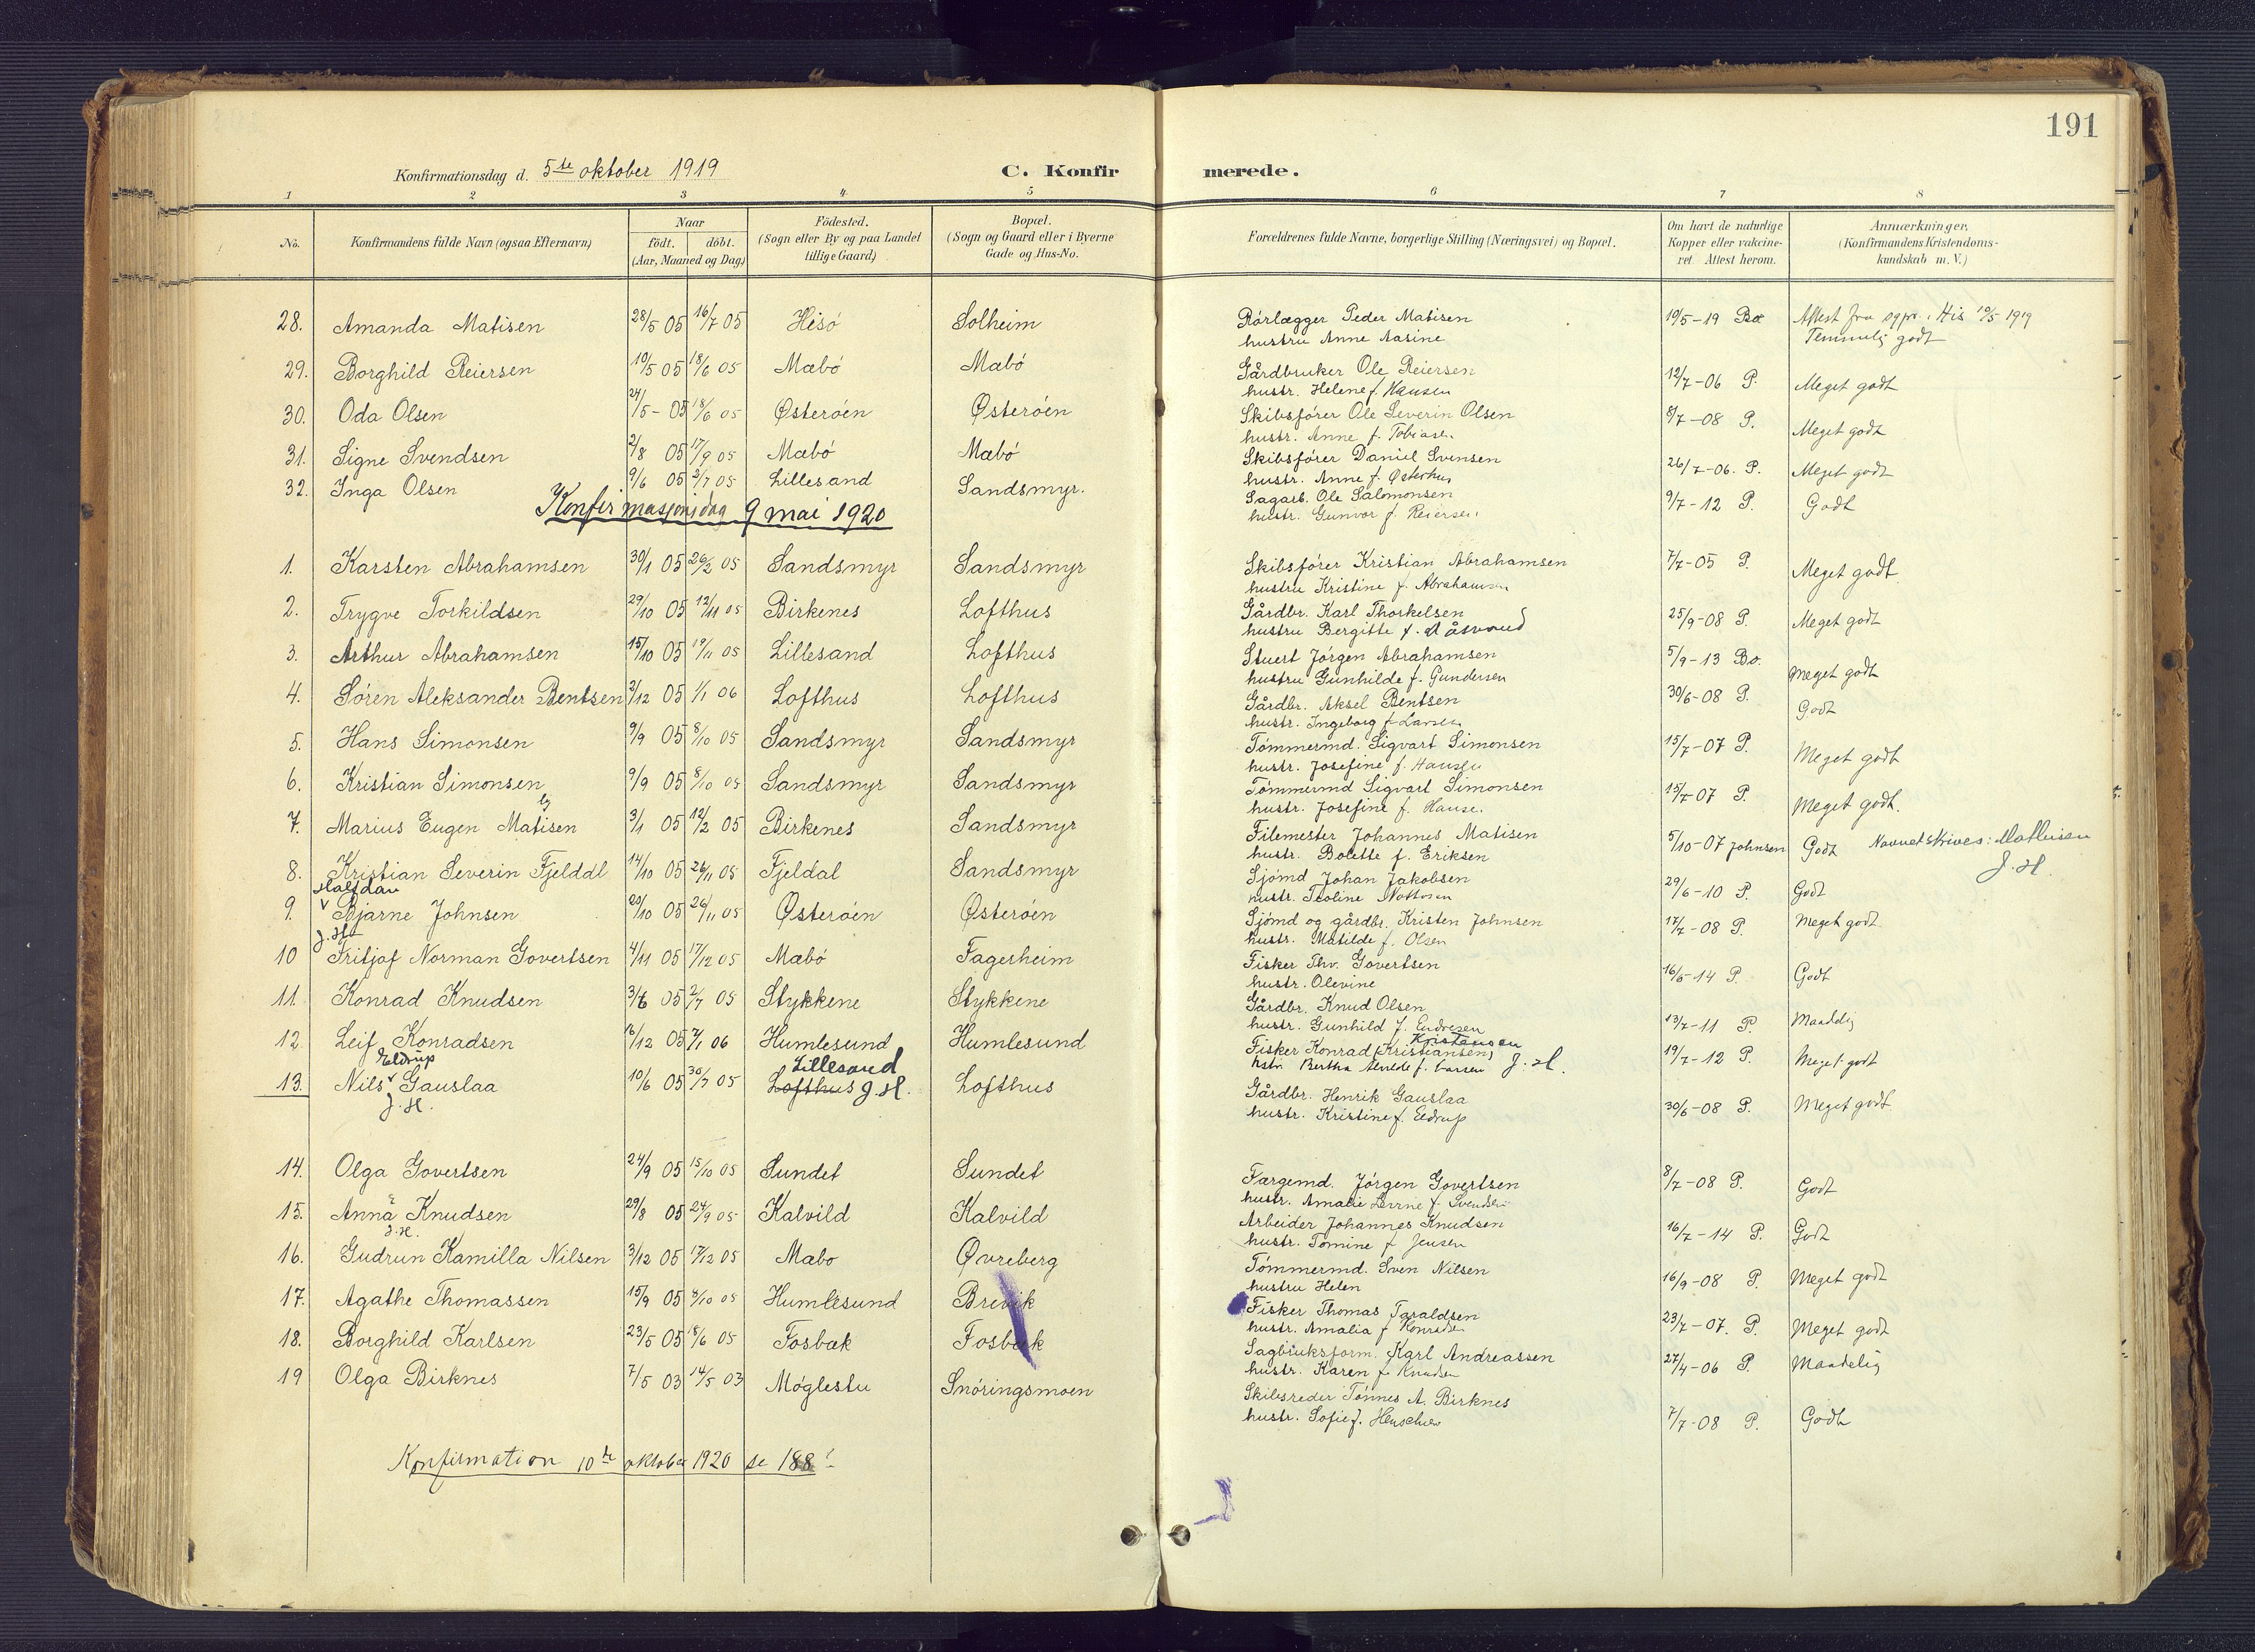 191
Konfirmationsdag d. 5te oktober 1919 C. Konfirmerede.
1 2 3 4 5 6 7 8
No. Konfirmandens fulde Navn (ogsaa Efternavn) Naar födt. döbt. (Aar, Maaned og Dag) Födested. (Sogn eller By og paa Landet tillige Gaard) Bopæl. (Sogn og Gaard eller i Byerne Gade og Hus-No. Forældrenes fulde Navne, borgerlige Stilling (Næringsvei) og Bopæl. Om havt de naturlige Kopper eller vakcineret. Attest herom. Anmærkninger, (Konfirmandens Kristendomskundskab m. V.)
28. Amanda Matisen 28/5 05 16/7 05 Hisö Solheim Rörlægger Peder Matisen 19/5-19 Attest fra sgpr. i His 19/5 1919
hustru Anne Aasine Temmelig godt
29. Borghild Reiersen 10/5 05 18/6 05 Mæbö Mæbö Gårdbruker Ole Reiersen 12/7-06 P. Meget godt
hustr. Helene f. Hansen
30. Oda Olsen 24/5-05 18/6 05 Østeröen Østeröen Skibsförer Ole Severin Olsen 8/7-08 P. Meget godt
hustr. Anne f. Tobiasen
31. Signe Svendsen 2/8 05 17/9 05 Mæbö Mæbö Skibsförer Daniel Svensen 26/7-06. P. Meget godt
hustr. Anne f. Østerhus
32. Inga Olsen 9/6 05 2/7 05 Lillesand Sandsmyr. Sagarb. Ole Salomonsen 9/7-12 P. Godt
hustr. Gunvor f. Reiersen
Konfirmasjonsdag 9 mai 1920
1. Karsten Abrahamsen 30/1 05 26/2 05 Sandsmyr Sandsmyr Skibsförer Kristian Abrahamsen 7/7-05 P. Meget godt
hustru Kristine f. Abrahamsen
2. Trygve Torkildsen 29/10 05 12/11 05 Birkenes Lofthus Gårdbr. Karl Thorkelsen 25/9-08 P. Meget godt
hustru Bergitte f.
3. Arthur Abrahamsen 15/10 05 19/11 05 Lillesand Lofthus Stuert Jörgen Abrahamsen 5/9-13 Bo. Meget godt
hustru Gunhilde f. Gundersen
4. Sören Aleksander Bentsen 3/12 05 1/1 06 Lofthus Lofthus Gårdbr. Aksel Bentsen 30/6-08 P. Godt
hustr. Ingeborg f. Larsen
5. Hans Simonsen 9/9 05 8/10 05 Sandsmyr Sandsmyr Tömmermd. Sigvart Simonsen 15/7-07 P. Meget godt
hustr. Josefine f. Hansen
6. Kristian Simonsen 9/9 05 8/10 05 Sandsmyr Sandsmyr Tömmermd Sigvart Simonsen 15/7-07 P. Meget godt.
hustr. Josefine f. Hansen
7. Marius Eugen Matisen 3/1 05 12/2 05 Birkenes Sandsmyr Filemester Johannes Matisen 5/10-07 Johnsen Godt Navnet skrives: Mathisen
hustr. Bolette f. Eriksen J. H.
8. Kristian Severin Fjelddl 14/10 05 26/11 05 Fjeldal Sandsmyr Sjömd Johan Jakobsen 29/6-10 P. Godt
hustr. Teoline
Halfdan
9. Bjarne Johnsen 20/10 05 26/11 05 Østeröen Østeröen Sjömd og gårdbr. Kristen Johnsen 17/7-08 P. Meget godt
J. H. hustr. Matilde f. Olsen
10 Fritjof Norman Govertsen 4/11 05 17/12 05 Mæbö Fagerheim Fisker Thv. Govertsen 16/5-14 P. Godt
hustr. Olevine
11. Konrad Knudsen 3/6 05 2/7 05 Stykkene Stykkene Gårdbr. Knud Olsen 13/7-11 P. Maadelig
hustr. Gunhild f. Endresen
Kristensen
12 Leif Konradsen 6/12 05 7/1 06 Humlesund Humlesund Fisker Konrad (Kristiansen) 19/7-12 P. Meget godt
hstr. Bertha f. Larsen J. H.
Eldrup Lillesand
13. Nils Gauslaa 10/6 05 30/7 05 Lofthus J. H. Lofthus Gårdbr. Henrik Gauslaa 30/6-08 P. Meget godt
J. H. hustr. Kristine f. Eldrup
14. Olga Govertsen 24/9 05 15/10 05 Sundet Sundet Færgemd. Jörgen Govertsen 8/7-08 P. Godt
hustr. Amalie f. Svendsen
15. Anna Knudsen 29/8 05 24/9 05 Kalvild Kalvild Arbeider Johannes Knudsen 16/7-14 P. Godt
J. H. hustr. Tomine f. Jensen
16. Gudrun Kamilla Nilsen 3/12 05 17/12 05 Mæbo Øvreberg Tömmermd. Sven Nilsen 16/9-08 P. Meget godt
hustru Helen
17. Agathe Thomassen 15/9 05 8/10 05 Humlesund Brevik Fisker Thomas Taraldsen 23/7-07. P. Meget godt
hustr. Amalia f. Konradsen
18. Borghild Karlsen 23/5 05 18/6 05 Fosbæk Fosbæk Sagbruksform. Karl Andreassen 27/4-06 P. Maadelig
hustr. Karen f. Knudsen
19 Olga Birknes 7/5 03 14/5 03 Möglestu Snöringsmoen Skibsreder Tönnes A. Birknes 7/7-08 P. Godt
hustr. Sofie f. Henschien
Konfirmation 10de oktober 1920 se 188